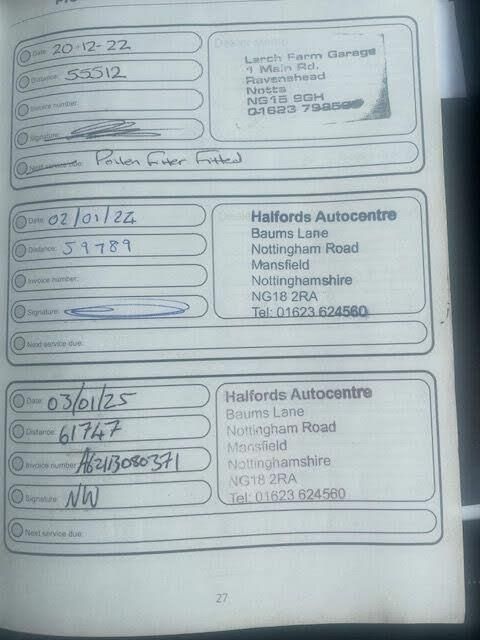 Date: 20-12-22
Distance: 55512
Invoice number:
Signature:
Next service due: Pollen Filter Fitted
Larch Farm Garage
1 Main Rd.
Ravenshead
Notts
NG15 9GH
01623
Date: 02/01/24
Distance: 59789
Invoice number:
Signature:
Next service due:
Halfords Autocentre
Baums Lane
Nottingham Road
Mansfield
Nottinghamshire
NG18 2RA
Tel: 01623 624560
Date: 03/01/25
Distance: 61747
Invoice number: A62113080371
Signature: NW
Next service due:
Halfords Autocentre
Baums Lane
Nottingham Road
Mansfield
Nottinghamshire
NG18 2RA
Tel: 01623 624560
27